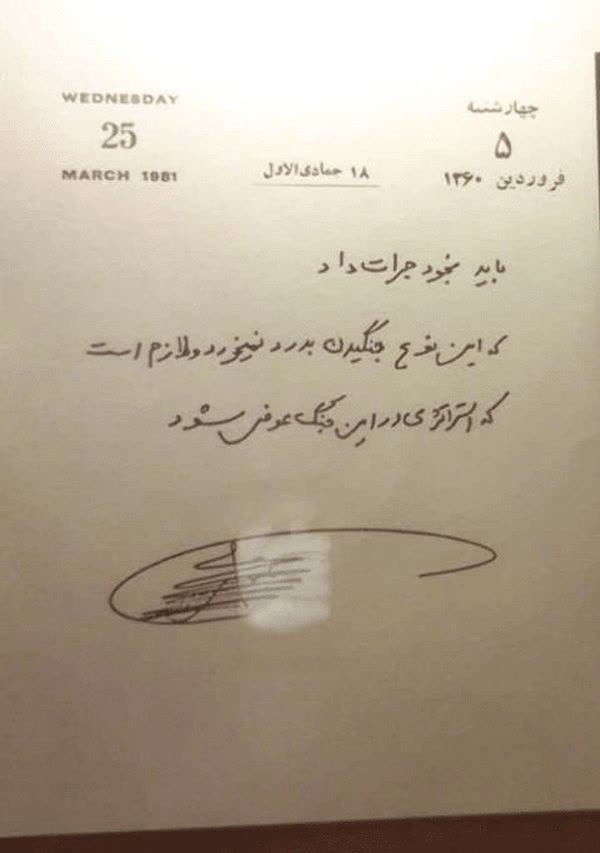 WEDNESDAY
25
MARCH 1981
چهارشنبه
۵
فروردین ۱۳۶۰
۱۸ جمادی‌الاول
باید بخود جرات داد
که این نوع جنگیدن بدرد نمیخورد و لازم است
که استراتژی در این جنگ عوض شود